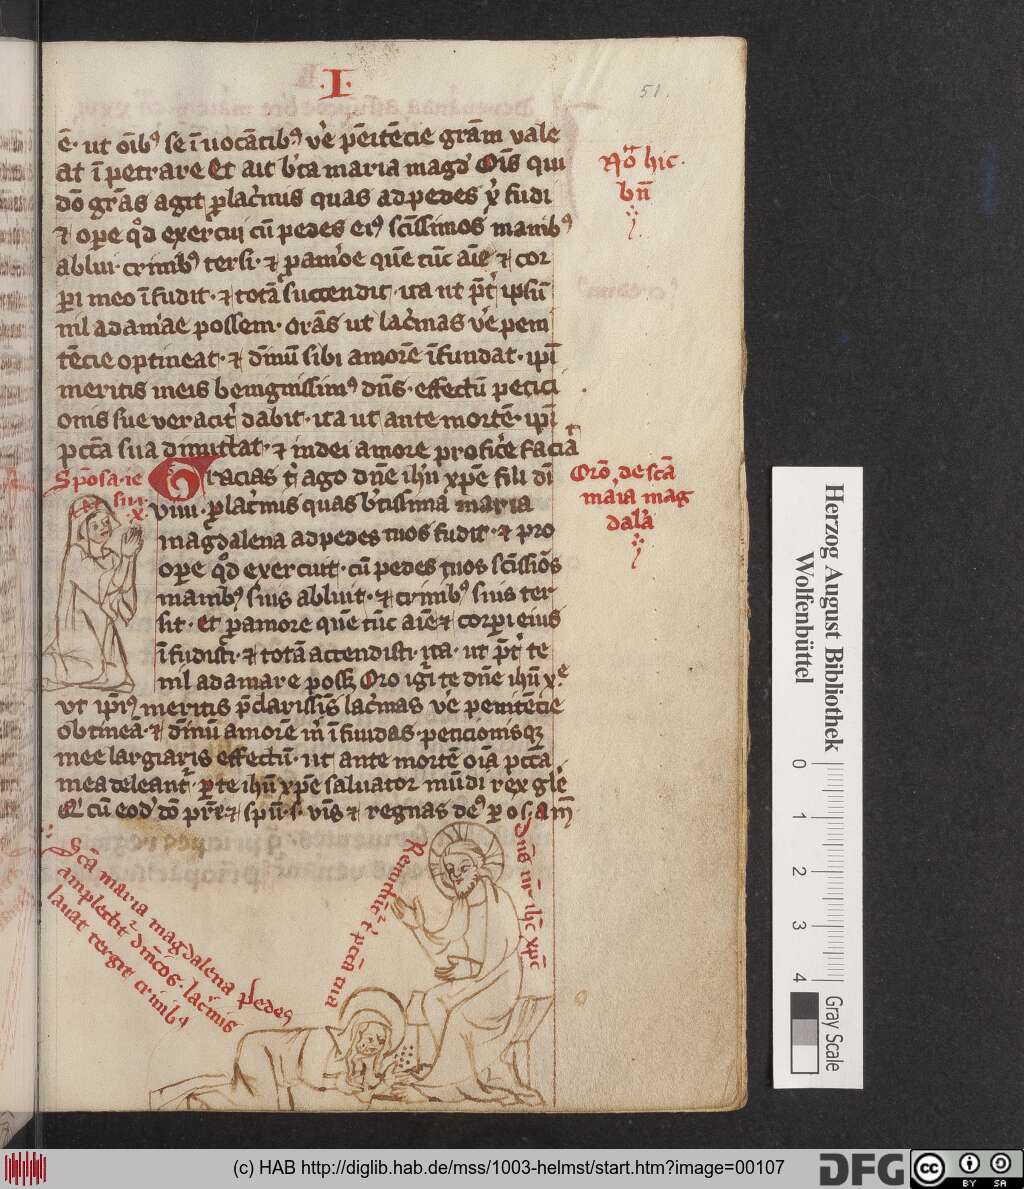 ·I·
51.
ē· ut oīb᷒ se īuocātib᷒ v̾e pēitēcie grām vale
at īpetrare Et ait b̄ta maria magd̾ Oīs qui
dō grās agit ꝓ lac̾mis quas ad pedes x̾ fudi
⁊ oꝑe qd̄ exercui cū pedes ei᷒ scīssimos manib᷒
ablui· crinib᷒ tersi· ⁊ ꝑ amōe quē tūc aīe ⁊ cor
ꝑi meo īfudit· ⁊ totā succendit· ita ut p̄t̾ ipsū
nil adamāe possem· orās ut lac̾mas v̾e peni
tēcie optineat· ⁊ dīnū sibi amorē īfundat· ip̄i
meritis meis benignissim᷒ dn̄s· effectū petici
onis sue veracit̾ dabit· ita ut ante mortē· ip̄i
pccā sua dimittat· ⁊ in dei amore profic̾e faciat
Gracias t̾ ago dn̄e ihū xp̄e fili dī
viui· ꝓ lac̾mis quas b̄tissima maria
magdalena ad pedes tuos fudit· ⁊ pro
oꝑe qd̄ exercuit· cū pedes tuos scīssīos
manib᷒ suis abluit· ⁊ crinib᷒ suis ter
sit· et ꝑ amore quē tūc aīe ⁊ corꝑi eius
īfudisti· ⁊ totā accendisti· ita· ut p̄t̾ te
nil adamare possꝫ Oro igr̄ te dn̄e ihū xe
ut ip̄i᷒ meritis p̄clarissīs lac̾mas v̾e penitēcie
obtineā· ⁊ dīnū amorē m̾ īfundas· peticionisqꝫ
mee largiaris effectū· ut ante mortē oīa pccā
mea deleant᷑· ꝑ te ihū xp̄e saluator mūdi rex gl̾e
Q̾ cū eod̾ dō pr̄e ⁊ spū· s· vīs ⁊ regnas de᷒ ꝑ o· s· am̄
Nō hic·
bn̄
Sp̄osa· ie
su· x̾
Orō, de scā
maīa mag
dal̾a
Scā maria magdalena pedes
amplectit᷑ dnīcos· lac̾mis
lavat tergit crinib᷒
Remittūt᷑ t̾ pccā tua
dn̄s nr̄ ihc̄ xpc̄
Herzog August Bibliothek
Wolfenbüttel
0 1 2 3 4
Gray Scale
(c) HAB http://diglib.hab.de/mss/1003-helmst/start.htm?image=00107
DFG
cc BY SA